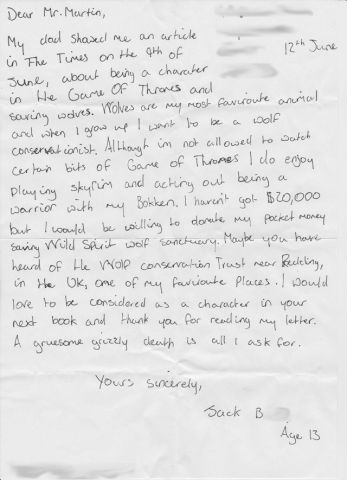 Dear Mr. Martin,
12th June
My dad showed me an article
in The Times on the 9th of
June, about being a charater
in the Game Of Thrones and
saving wolves. Wolves are my most favrioute animal
and when I grow up I want to be a wolf
conservationist. Although im not allowed to watch
certain bits of Game of Thrones I do enjoy
playing skyrim and acting out being a
warrior with my Bokken. I haven't got $20,000
but I would be willing to donate my pocket money
saving Wild Spirit wolf sanctuary. Maybe you have
heard of the Wolf conservation Trust near Redding,
in the UK, one of my favrioute Places. I would
love to be considered as a character in your
next book and thank you for reading my letter.
A gruesome grizzly death is all I ask for.
Yours sincerely,
Jack B
Age 13